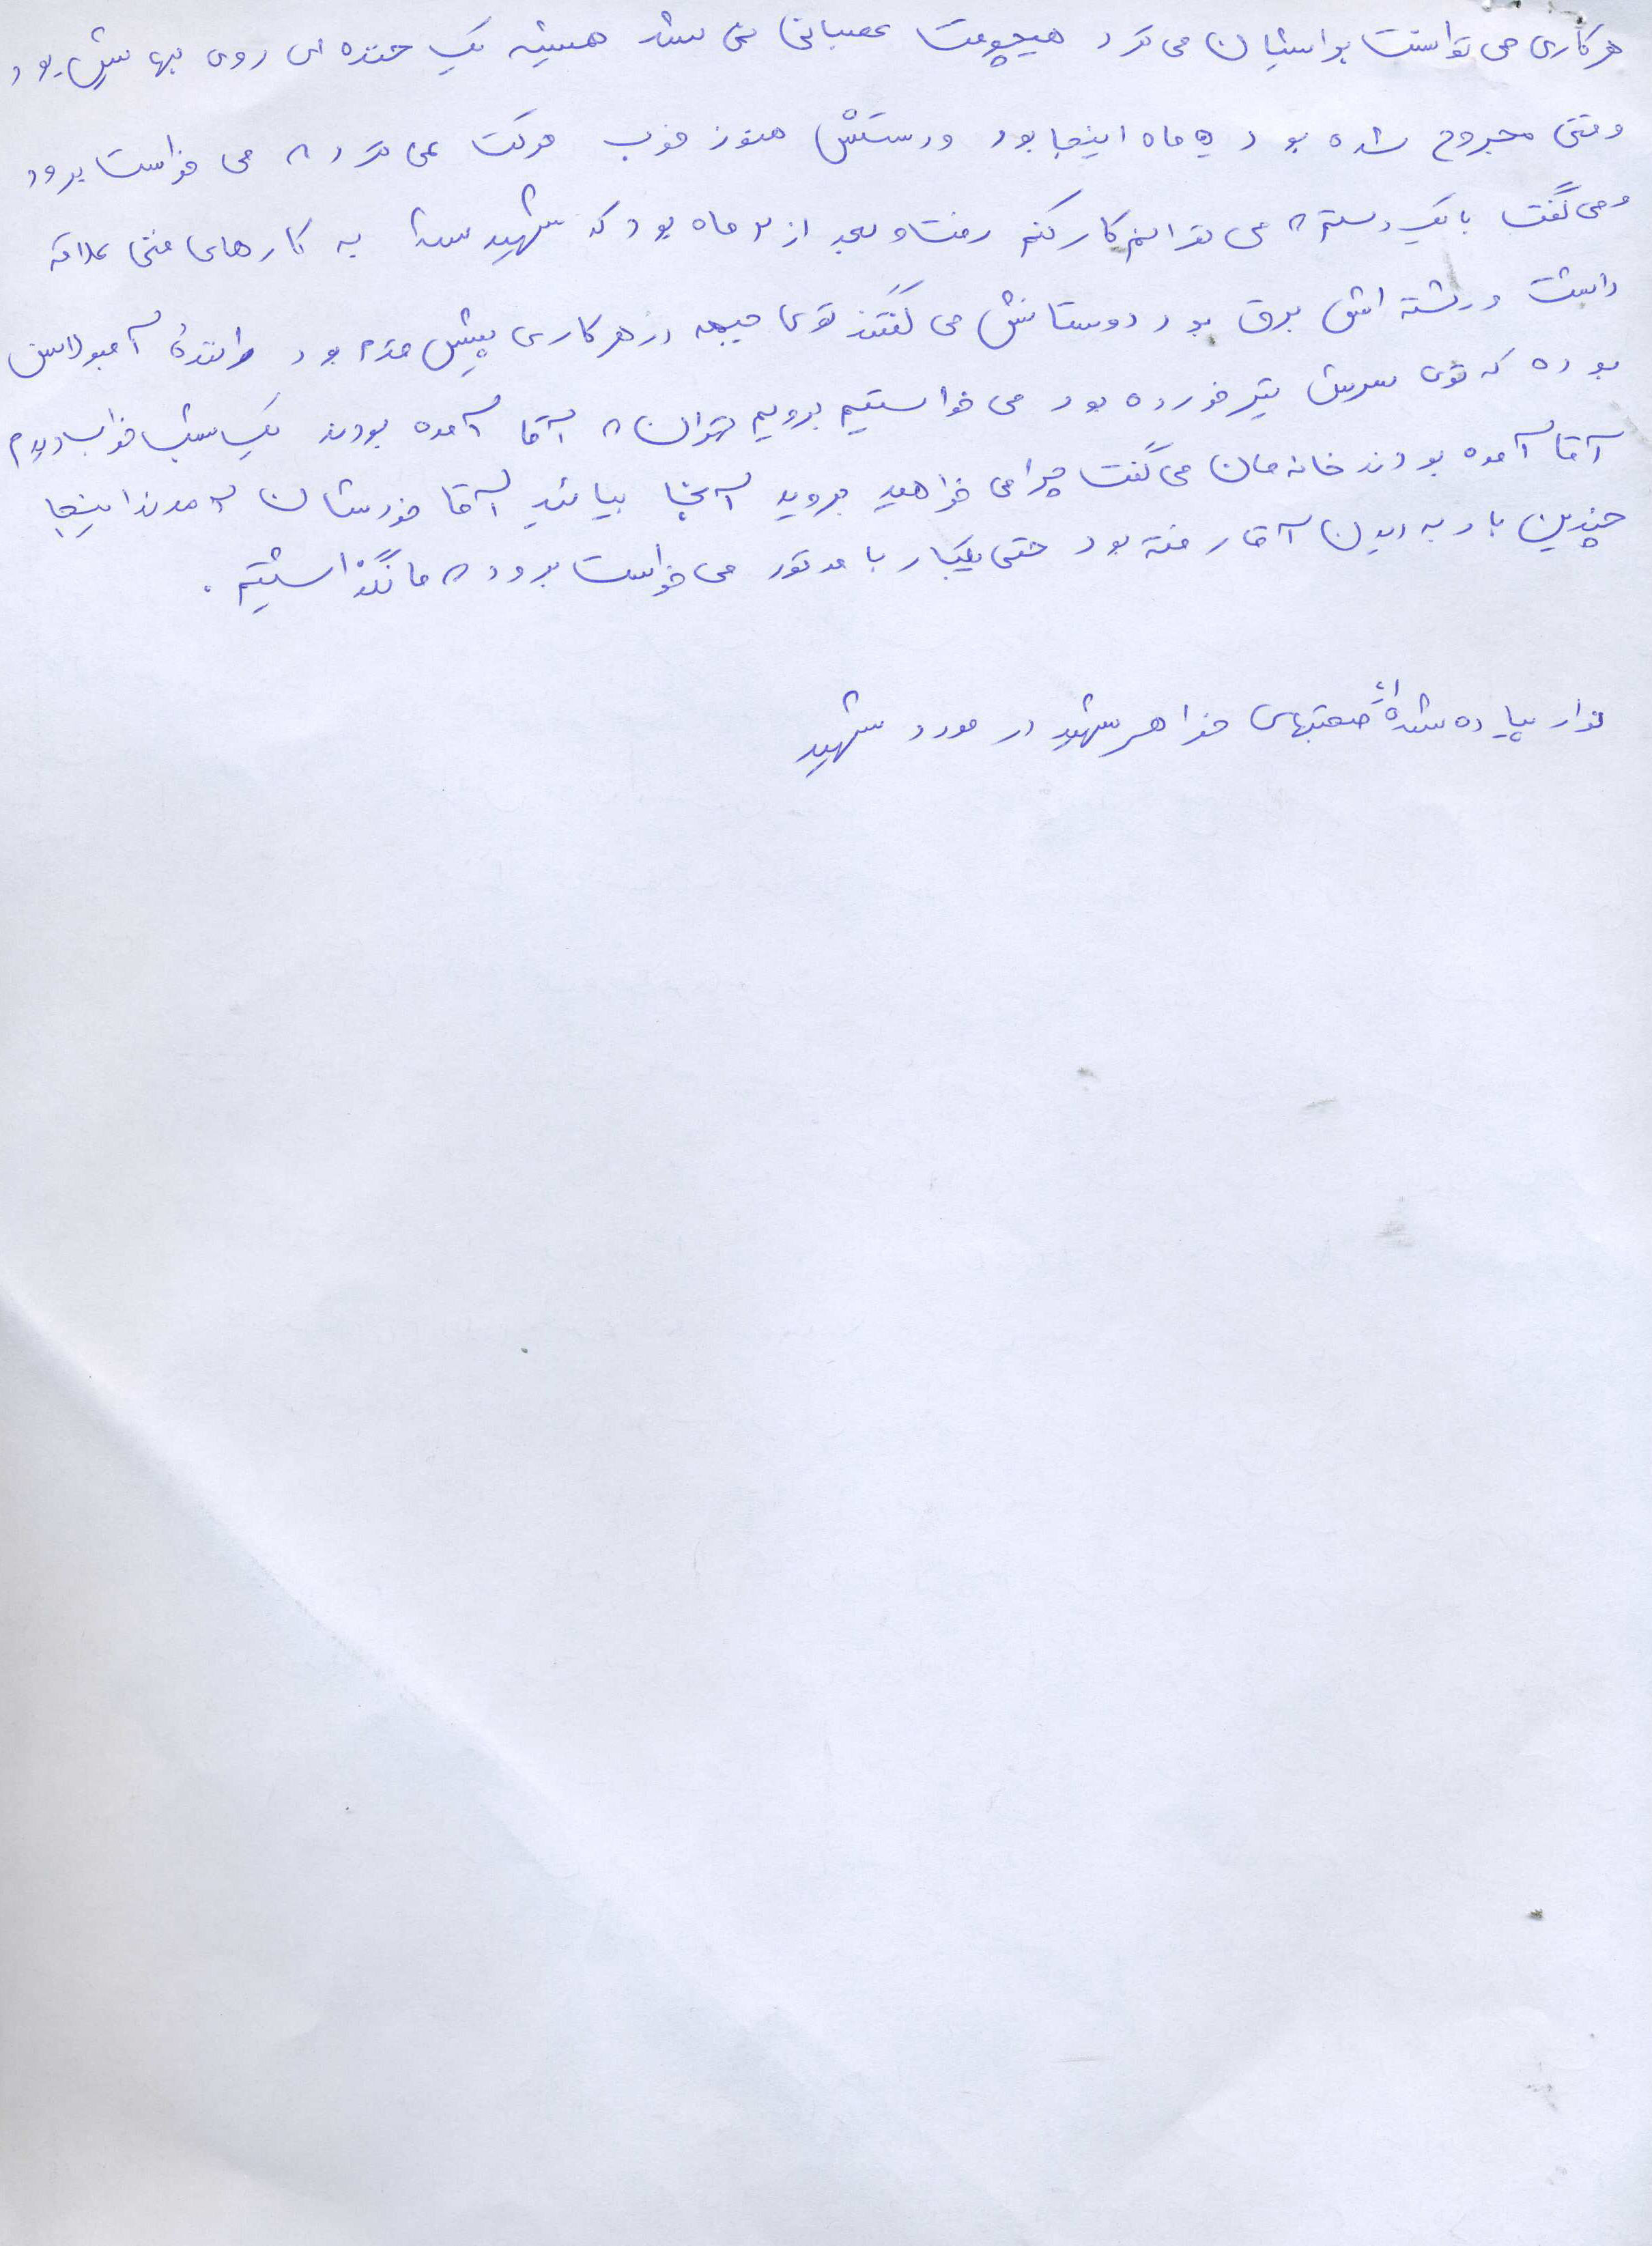 هر کاری می توانست برایشان می کرد هیچوقت عصبانی نمی شد همیشه یک خنده ای روی لبهایش بود
وقتی مجروح شده بود ۵ ماه اینجا بود و دستش هنوز خوب حرکت نمی کرد می خواست برود
و می گفت با یک دستم می توانم کار کنم رفت و بعد از ۲ ماه بود که شهید شد به کارهای فنی علاقه
داشت و رشته اش برق بود دوستانش می گفتند توی جبهه در هر کاری پیش قدم بود رانندهٔ آمبولانس
بوده که توی سرش تیر خورده بود می خواستیم برویم تهران آقا آمده بودند یک شب خواب دیدم
آقا آمده بودند خانه مان می گفت چرا می خواهید بروید آنجا بیائید آقا خودشان آمدند اینجا
چندین بار به دیدن آقا رفته بود حتی یکبار با موتور می خواست برود ما نگذاشتیم .
نوار پیاده شدهٔ صحبتهای خواهر شهید در مورد شهید